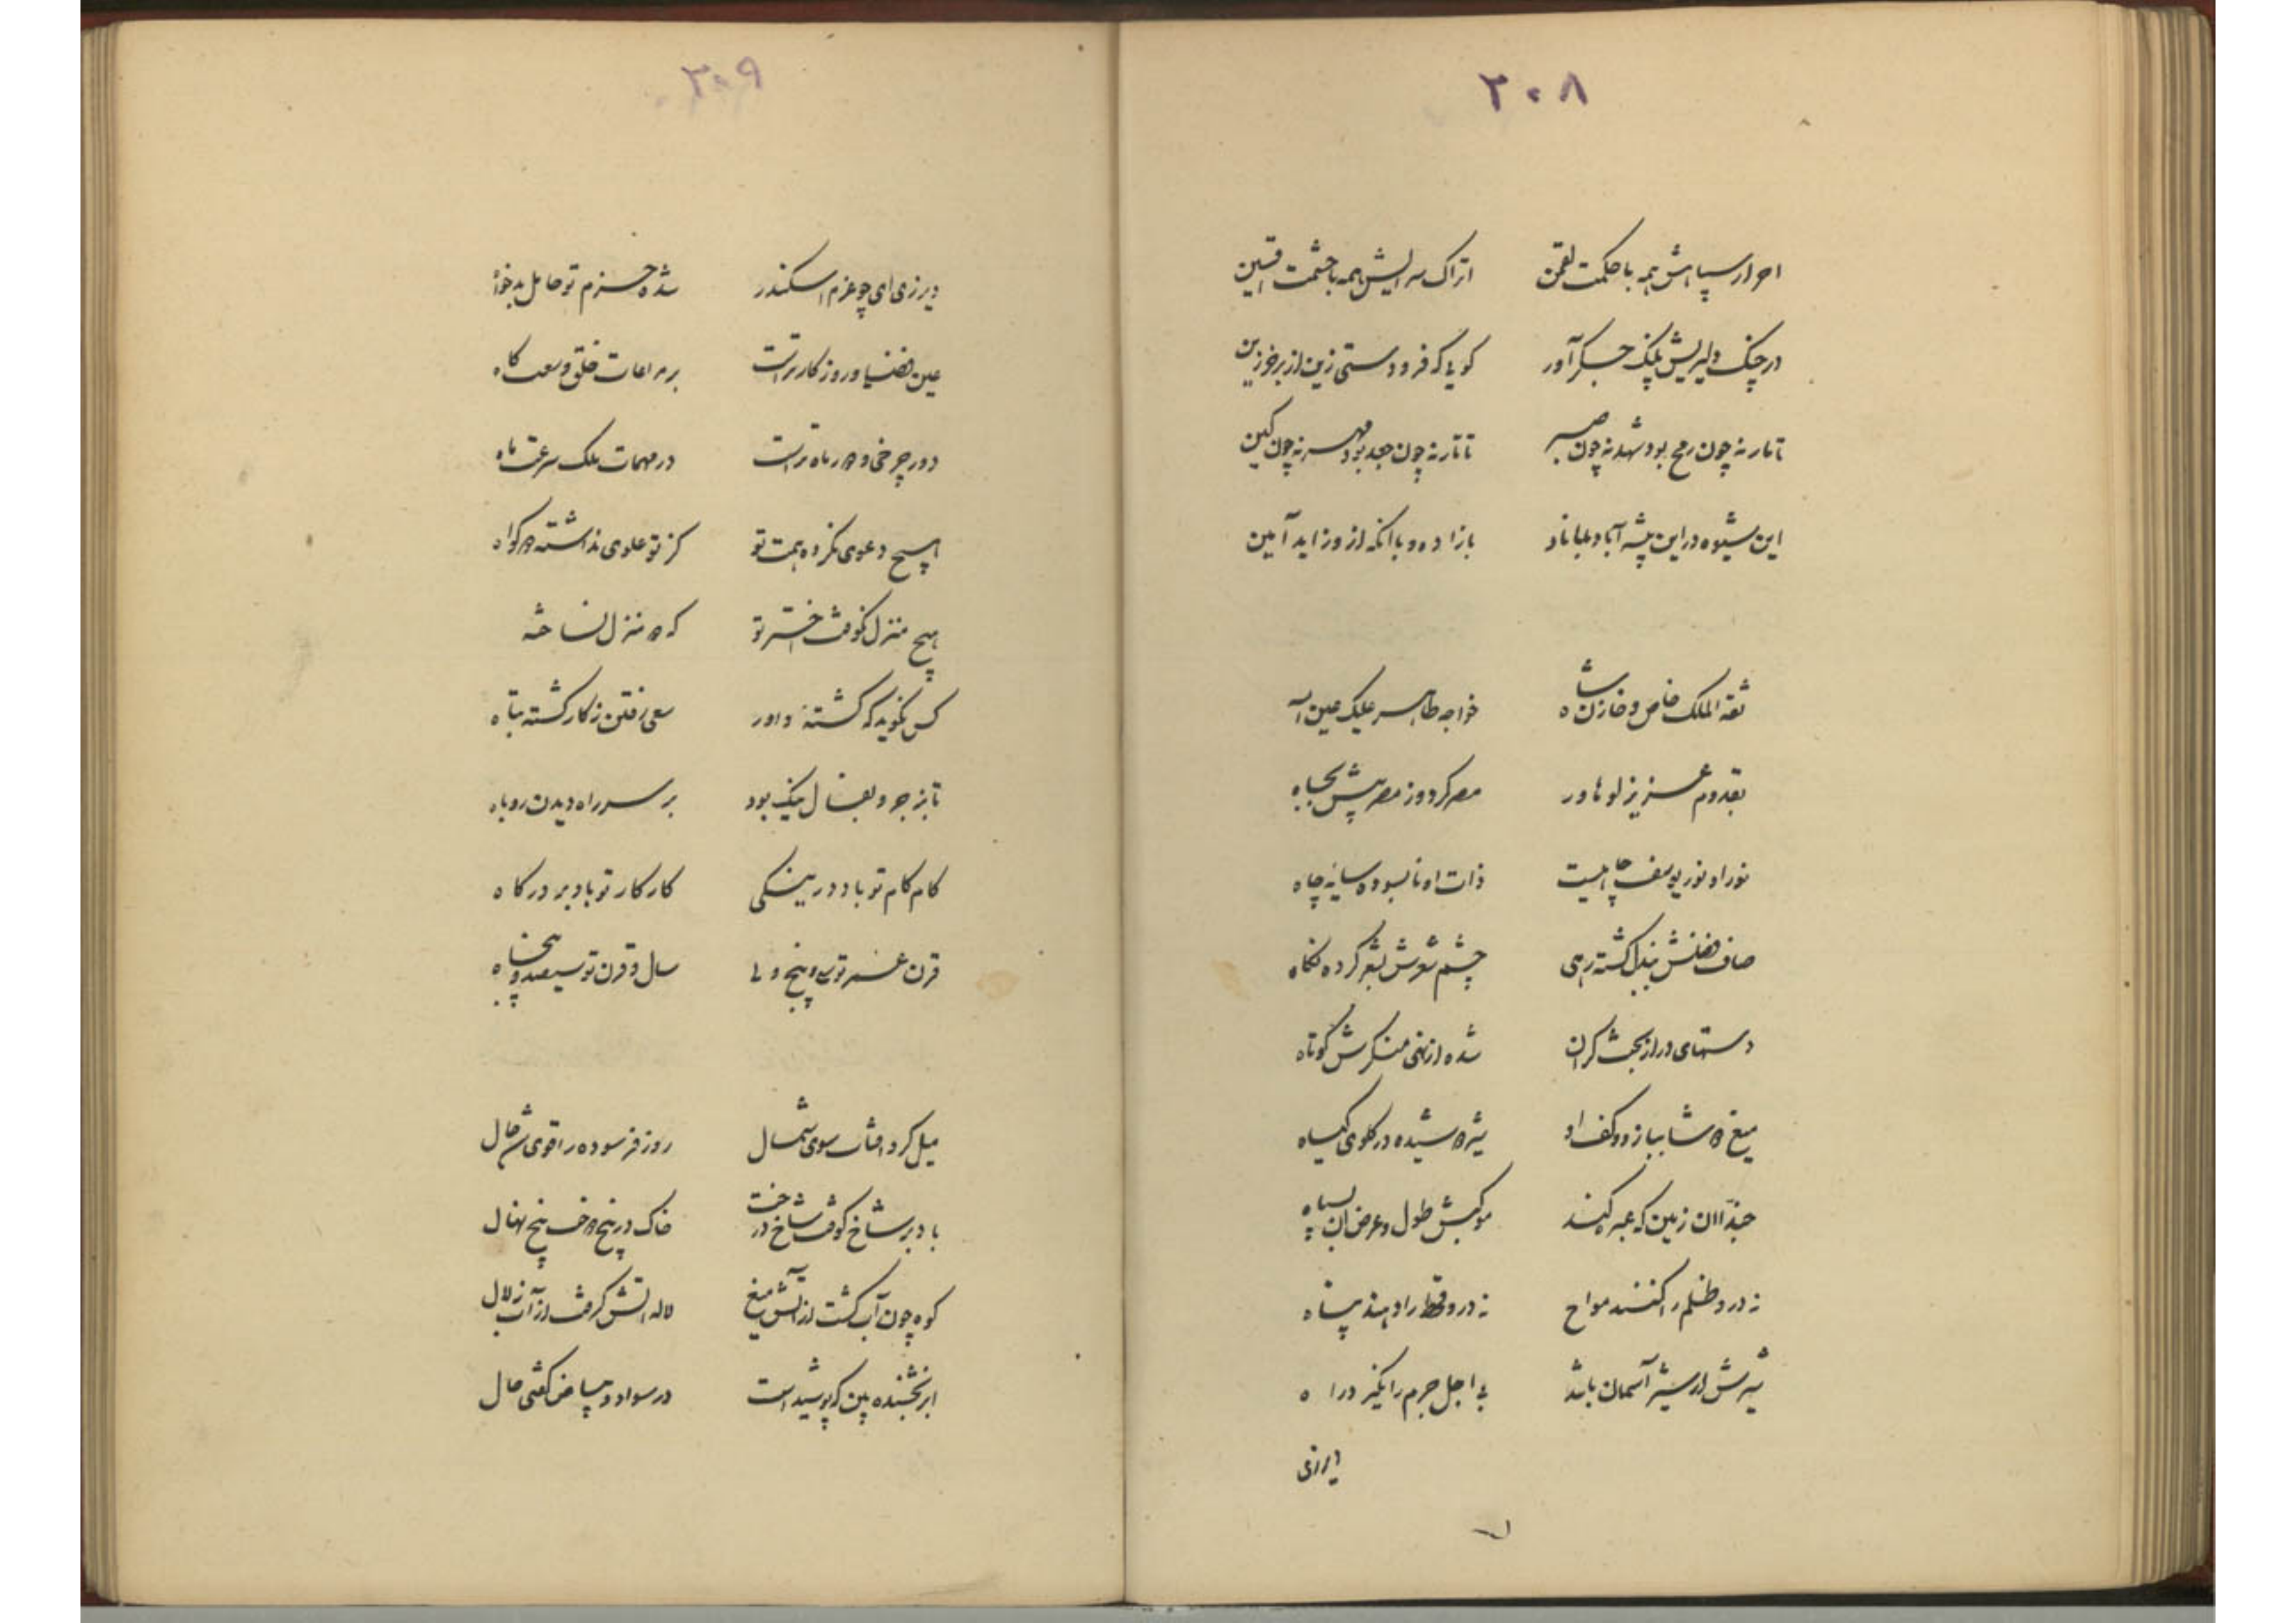 ۲۰۸
احرار سپاهش همه با حکمت لقمن اتراک سرایش همه با حشمت افشین
در چنگ دلیریش پلنگ جگرآور کویی که فرودستی زین از بر خرزین
تا مار نه چون رمح بود شهد نه چون صبر تا تار نه چون جعد بود مهر نه چون کین
این شیوه در این پیشه آباد بماناد بازاده و باانکه ازو زاید آمین
ثقه الملک خاص و خازن شاه خواجه طاهر علیک عین اله
بقدوم عزیز لوهاور مصر کرد و ز مصر پیش بجاه
نور او نور یوسف چاهیست ذات او نابسوده سایه چاه
صاف فضلش ببذل کشته رهی چشم شعرش بشعر کرده نکاه
دستهای دراز بحث کران شده از نهی منکرش کوتاه
میغ هرشا ببازد و کف او شیر هرشیده در کلوی کیاه
حبذا ان زمین که عبره کند موکبش طول و عرض ان بسپاه
نه درو ظلم را کنند مواح نه درو قحط را دهند پناه
شیرش ار شیر آسمان باشد بی اجل جرم را نکیرد راه
دیرزی
۲۰۹
دیرزی ای چو عزم اسکندر شده حزم تو حامل بدخواه
عین فضلیا و روزکار تراست بر مراعات خلق وسعت کاه
دور چرخی و هر ماه تراست در مهمات ملک سرعت ماه
هیچ دعوی نکرده همت تو کز تو علوی نداشته هر کواه
هیچ منزل نکوفت اختر تو که هر منزل نساخت
کس نکوید که کشته داور سعی رفتن ز کار کشته تباه
تا بزجر و بفال نیک بود بر سر راه دیدن روباه
کام کام تو باد در نیکی کار کار تو باد بر درکاه
قرن عمر تو سی و پنج و لی سال و قرن تو سیصد و پنجاه
میل کرد آفتاب سوی شمال روز فرسوده را قوی شد حال
باد بر شاخ کوفت شاخ درخت خاک در بیخ دوخت بیخ نهال
کوه چون آب کشت از آتش میغ لاله آتش کرفت از آب زلال
ابر بخشنده بین که پوشیدست در سواد و بیاض کفتی حال